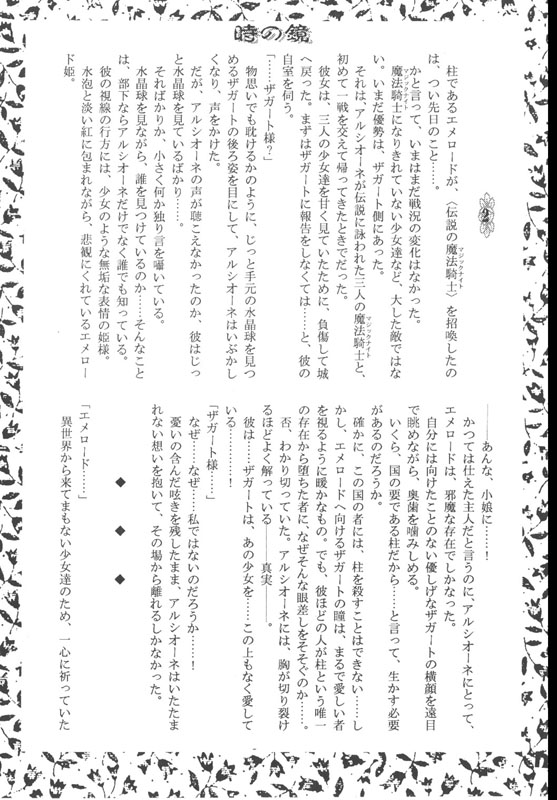 時の鏡
2
柱であるエメロードが、〈伝説の魔法騎士〉を招喚したの
マジックナイト
は、つい先日のこと……。
かと言って、いまはまだ戦況の変化はなかった。
魔法騎士になりきれていない少女達など、大した敵ではな
マジックナイト
い。いまだ優勢は、ザガート側にあった。
それは、アルシオーネが伝説に詠われた三人の魔法騎士と、
マジックナイト
初めて一戦を交えて帰ってきたときでだった。
彼女は、三人の少女達を甘く見ていたために、負傷して城
へ戻った。まずはザガートに報告をしなくては……と、彼の
自室を伺う。
「……ザガート様？」
物思いでも耽けるかのように、じっと手元の水晶球を見つ
めるザガートの後ろ姿を目にして、アルシオーネはいぶかし
くなり、声をかけた。
だが、アルシオーネの声が聴こえなかったのか、彼はじっ
と水晶球を見ているばかり……。
そればかりか、小さく何か独り言を囁いている。
水晶球を見ながら、誰を見つけているのか……そんなこと
は、部下ならアルシオーネだけでなく誰でも知っている。
彼の視線の行方には、少女のような無垢な表情の姫様。
水泡と淡い紅に包まれながら、悲観にくれているエメロー
ド姫。
――あんな、小娘に……！
かつては仕えた主人だと言うのに、アルシオーネにとって、
エメロードは、邪魔な存在でしかなかった。
自分には向けたことのない優しげなザガートの横顔を遠目
で眺めながら、奥歯を噛みしめる。
いくら、国の要である柱だから……と言って、生かす必要
があるのだろうか。
確かに、この国の者には、柱を殺すことはできない……し
かし、エメロードへ向けるザガートの瞳は、まるで愛しい者
を視るように暖かなもの。でも、彼ほどの人が柱という唯一
の存在から堕ちた者に、なぜそんな眼差しをそそぐのか……。
否、わかり切っていた。アルシオーネには、胸が切り裂け
るほどよく解っている――真実――。
彼は……ザガートは、あの少女を……この上もなく愛して
いる…………！
「ザガート様……」
なぜ……なぜ……私ではないのだろうか……！
憂いの含んだ呟きを残したまま、アルシオーネはいたたま
れない想いを抱いて、その場から離れるしかなかった。
◆　◆　◆
「エメロード……」
異世界から来てまもない少女達のため、一心に祈っていた